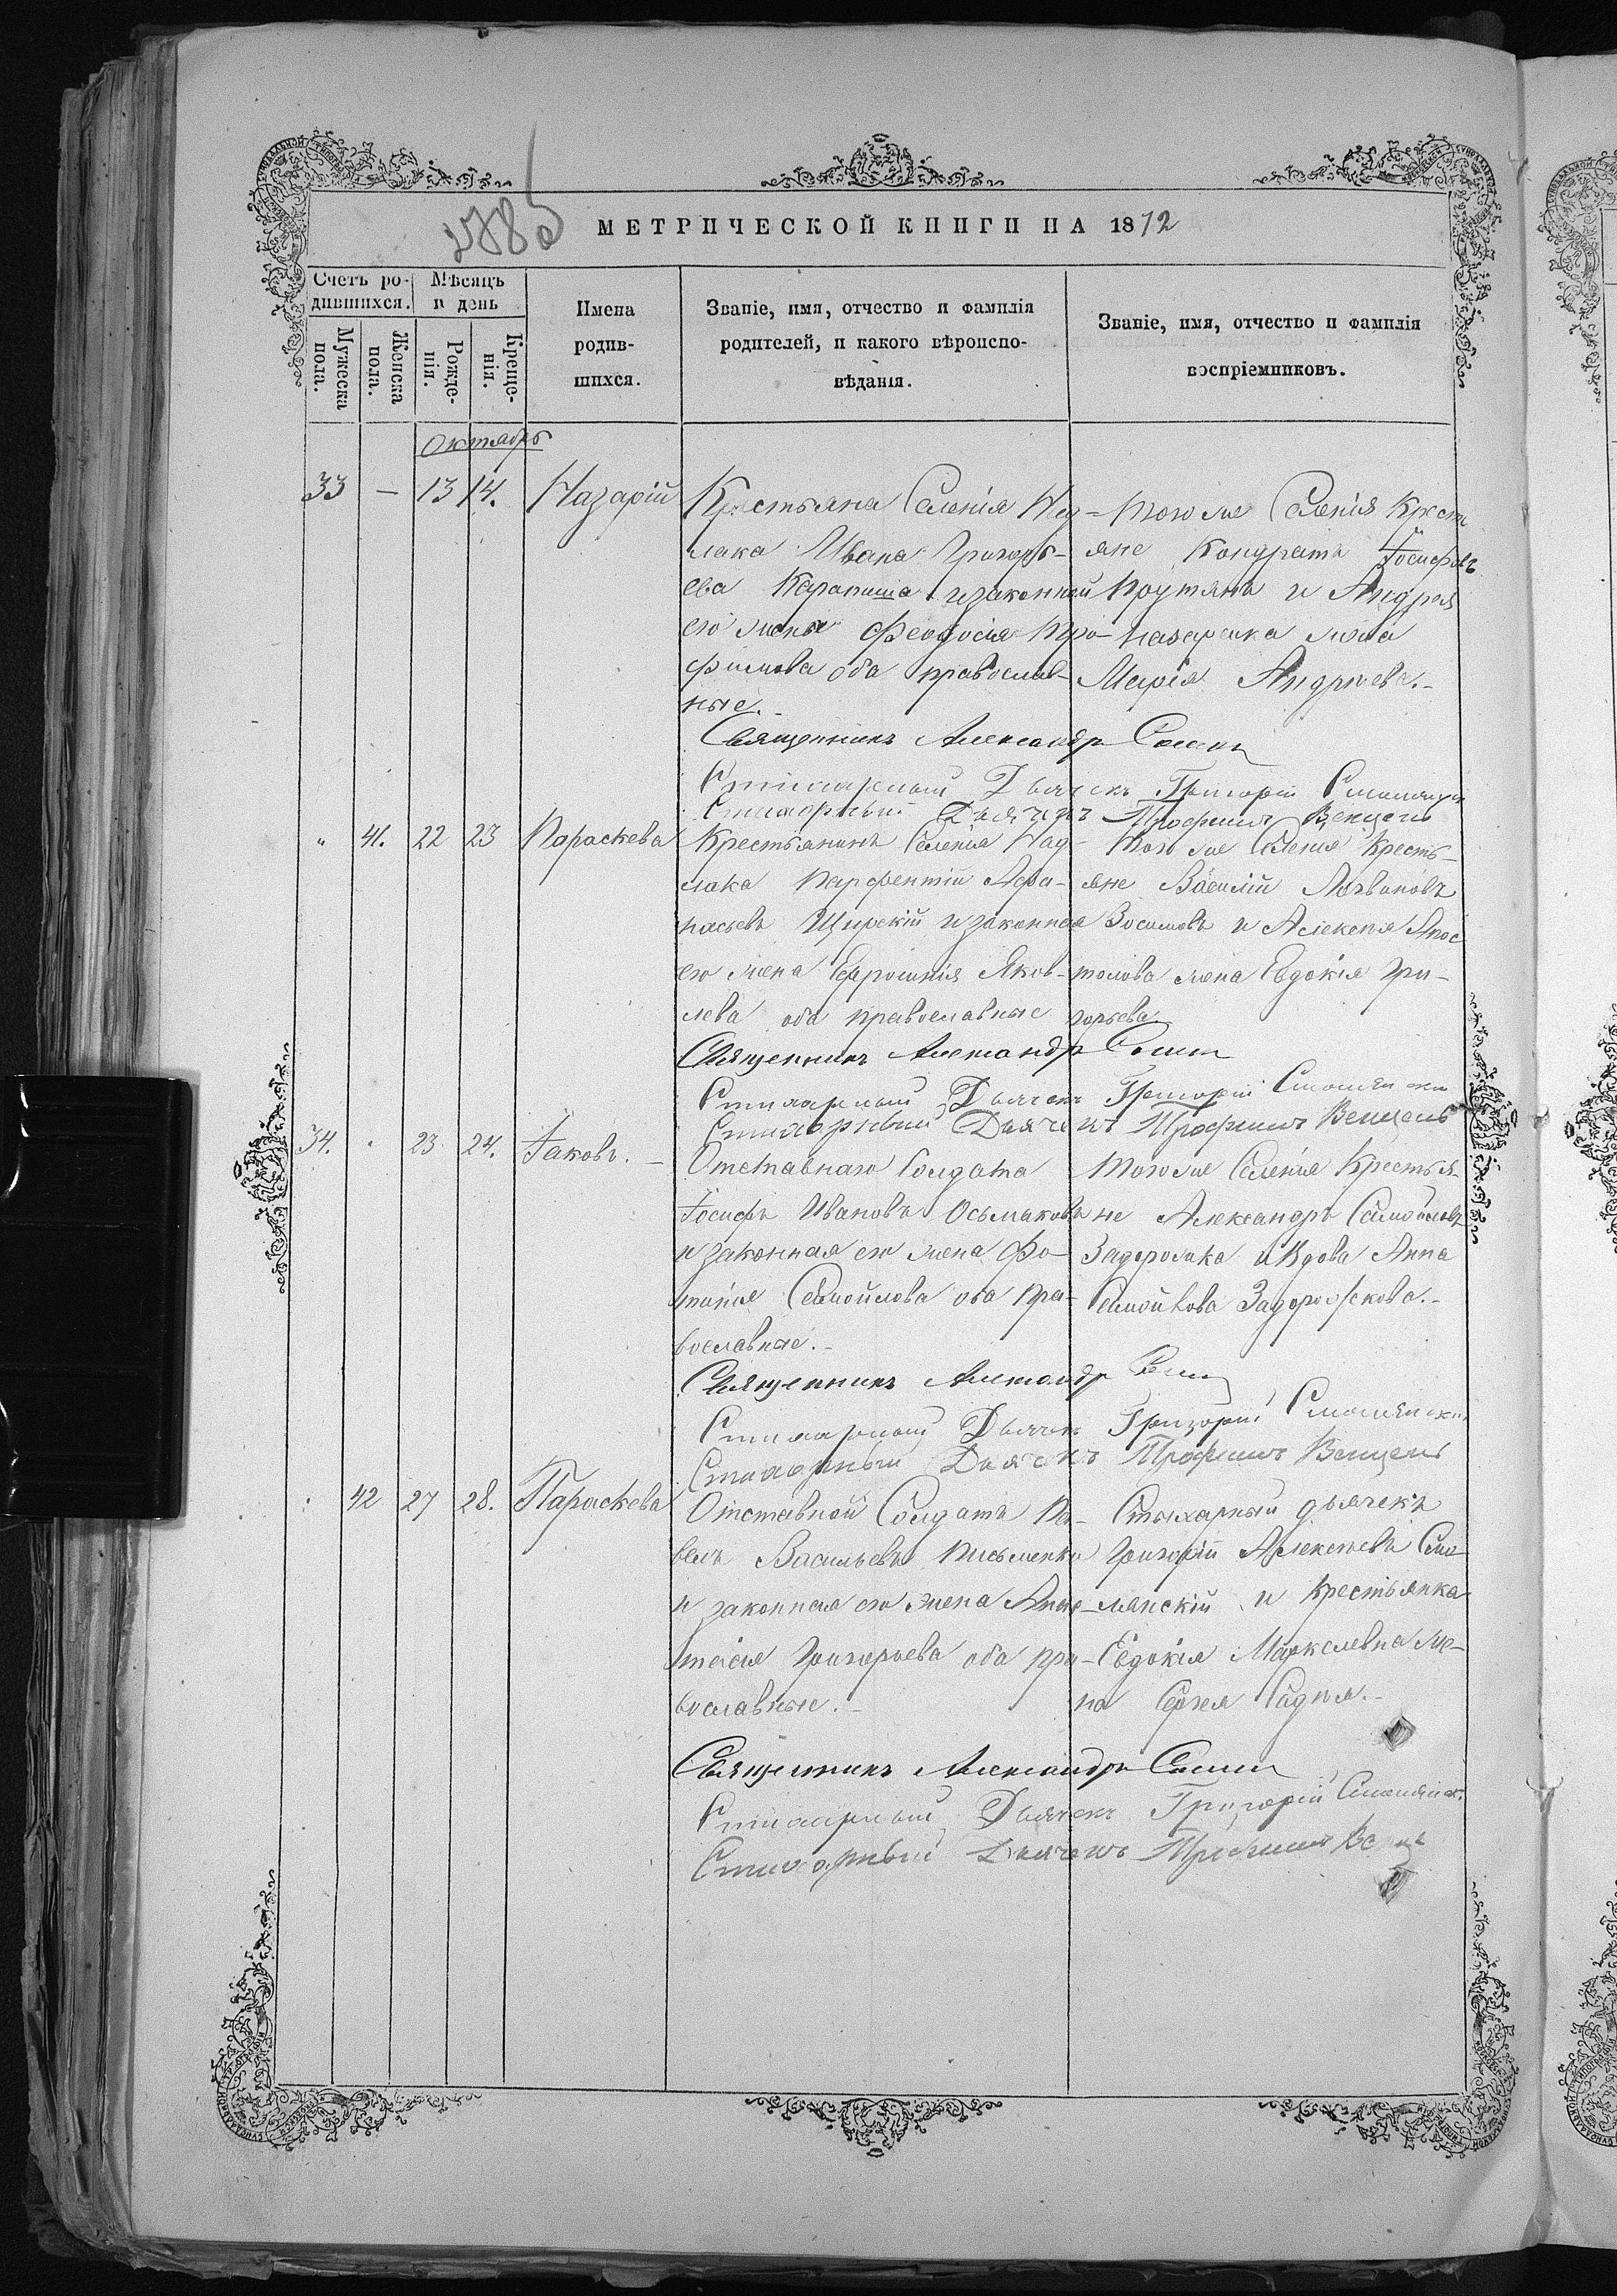 МЕТРИЧЕСКОЙ КНИГИ НА 1872
Счетъ ро-
дившихся.
Мѣсяцъ
и день
Мужеска
пола.
Женска
пола.
Рожде-
нія.
Креще-
нія.
Имена
родив-
шихся.
Званіе, имя, отчество и фамилія
родителей, и какого вѣроиспо-
вѣданія.
Званіе, имя, отчество и фамилія
воспріемниковъ.
Октябрь
33 — 13 14. Назарій
Крестьяна Селенія Над-
лака Ивана Григорь-
ева Карапиша и законной
его жены Феодосія Тро-
фимова оба православ-
ные.
Того же Селенія Крест
яне Кондратъ Іосифовъ
Прутянъ и Андрея
Назаренка жена
Марія Андреева.-
Священникъ Александръ
Стихарный Дьячекъ Григорій
Стихарный Дьячекъ Трофимъ Венцель
" 41. 22 23 Параскева
Крестьянинъ Селенія Над-
лака Парфентій Афа-
насьевъ Щирскій и законная
его жена Евфросинія Яков-
лева оба православные
Того же Селенія Кресть-
яне Василій Логвиновъ
Зосимовъ и Алексея Апос
толова жена Евдокія Гри-
горьева
Священникъ Александръ
Стихарный Дьячекъ Григорій Смолянскій
Стихарный Дьячекъ Трофимъ Венцель
34. " 23 24. Іаковъ. —
Отставнаго Солдата
Іосифъ Ивановъ Осьмаковъ
и законная его жена Фо-
тинія Самойлова оба пра-
вославные.-
Того же Селенія Крестья-
не Александръ Самойловъ
Задорожка и Вдова Анна
Самойлова Задорожкова.-
Священникъ Александръ
Стихарный Дьячекъ Григорій Смолянскій
Стихарный Дьячекъ Трофимъ Венцель
" 42 27 28. Параскева
Отставной Солдатъ Па-
велъ Васильевъ Письменки
и законная его жена Анас-
тасія Григорьева оба пра-
вославные.-
Стихарный дьячекъ
Григорій Алексѣевъ Смо-
лянскій и Крестьянка
Евдокія Маркелевна же-
на Сергея
Священникъ Александръ
Стихарный Дьячекъ Григорій Смолянск.
Стихарный Дьячекъ Трофимъ